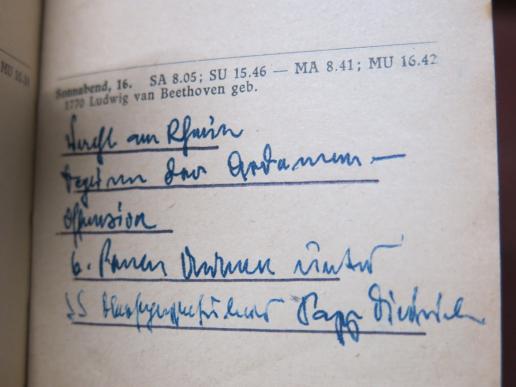 MU 16.
Sonnabend, 16. SA 8.05; SU 15.46 — MA 8.41; MU 16.42
1770 Ludwig van Beethoven geb.
am Rhein
Beginn der Ardennen—
Offensive
6. Panzer Armee unter
SS Oberstgruppenführer Sepp Dietrich